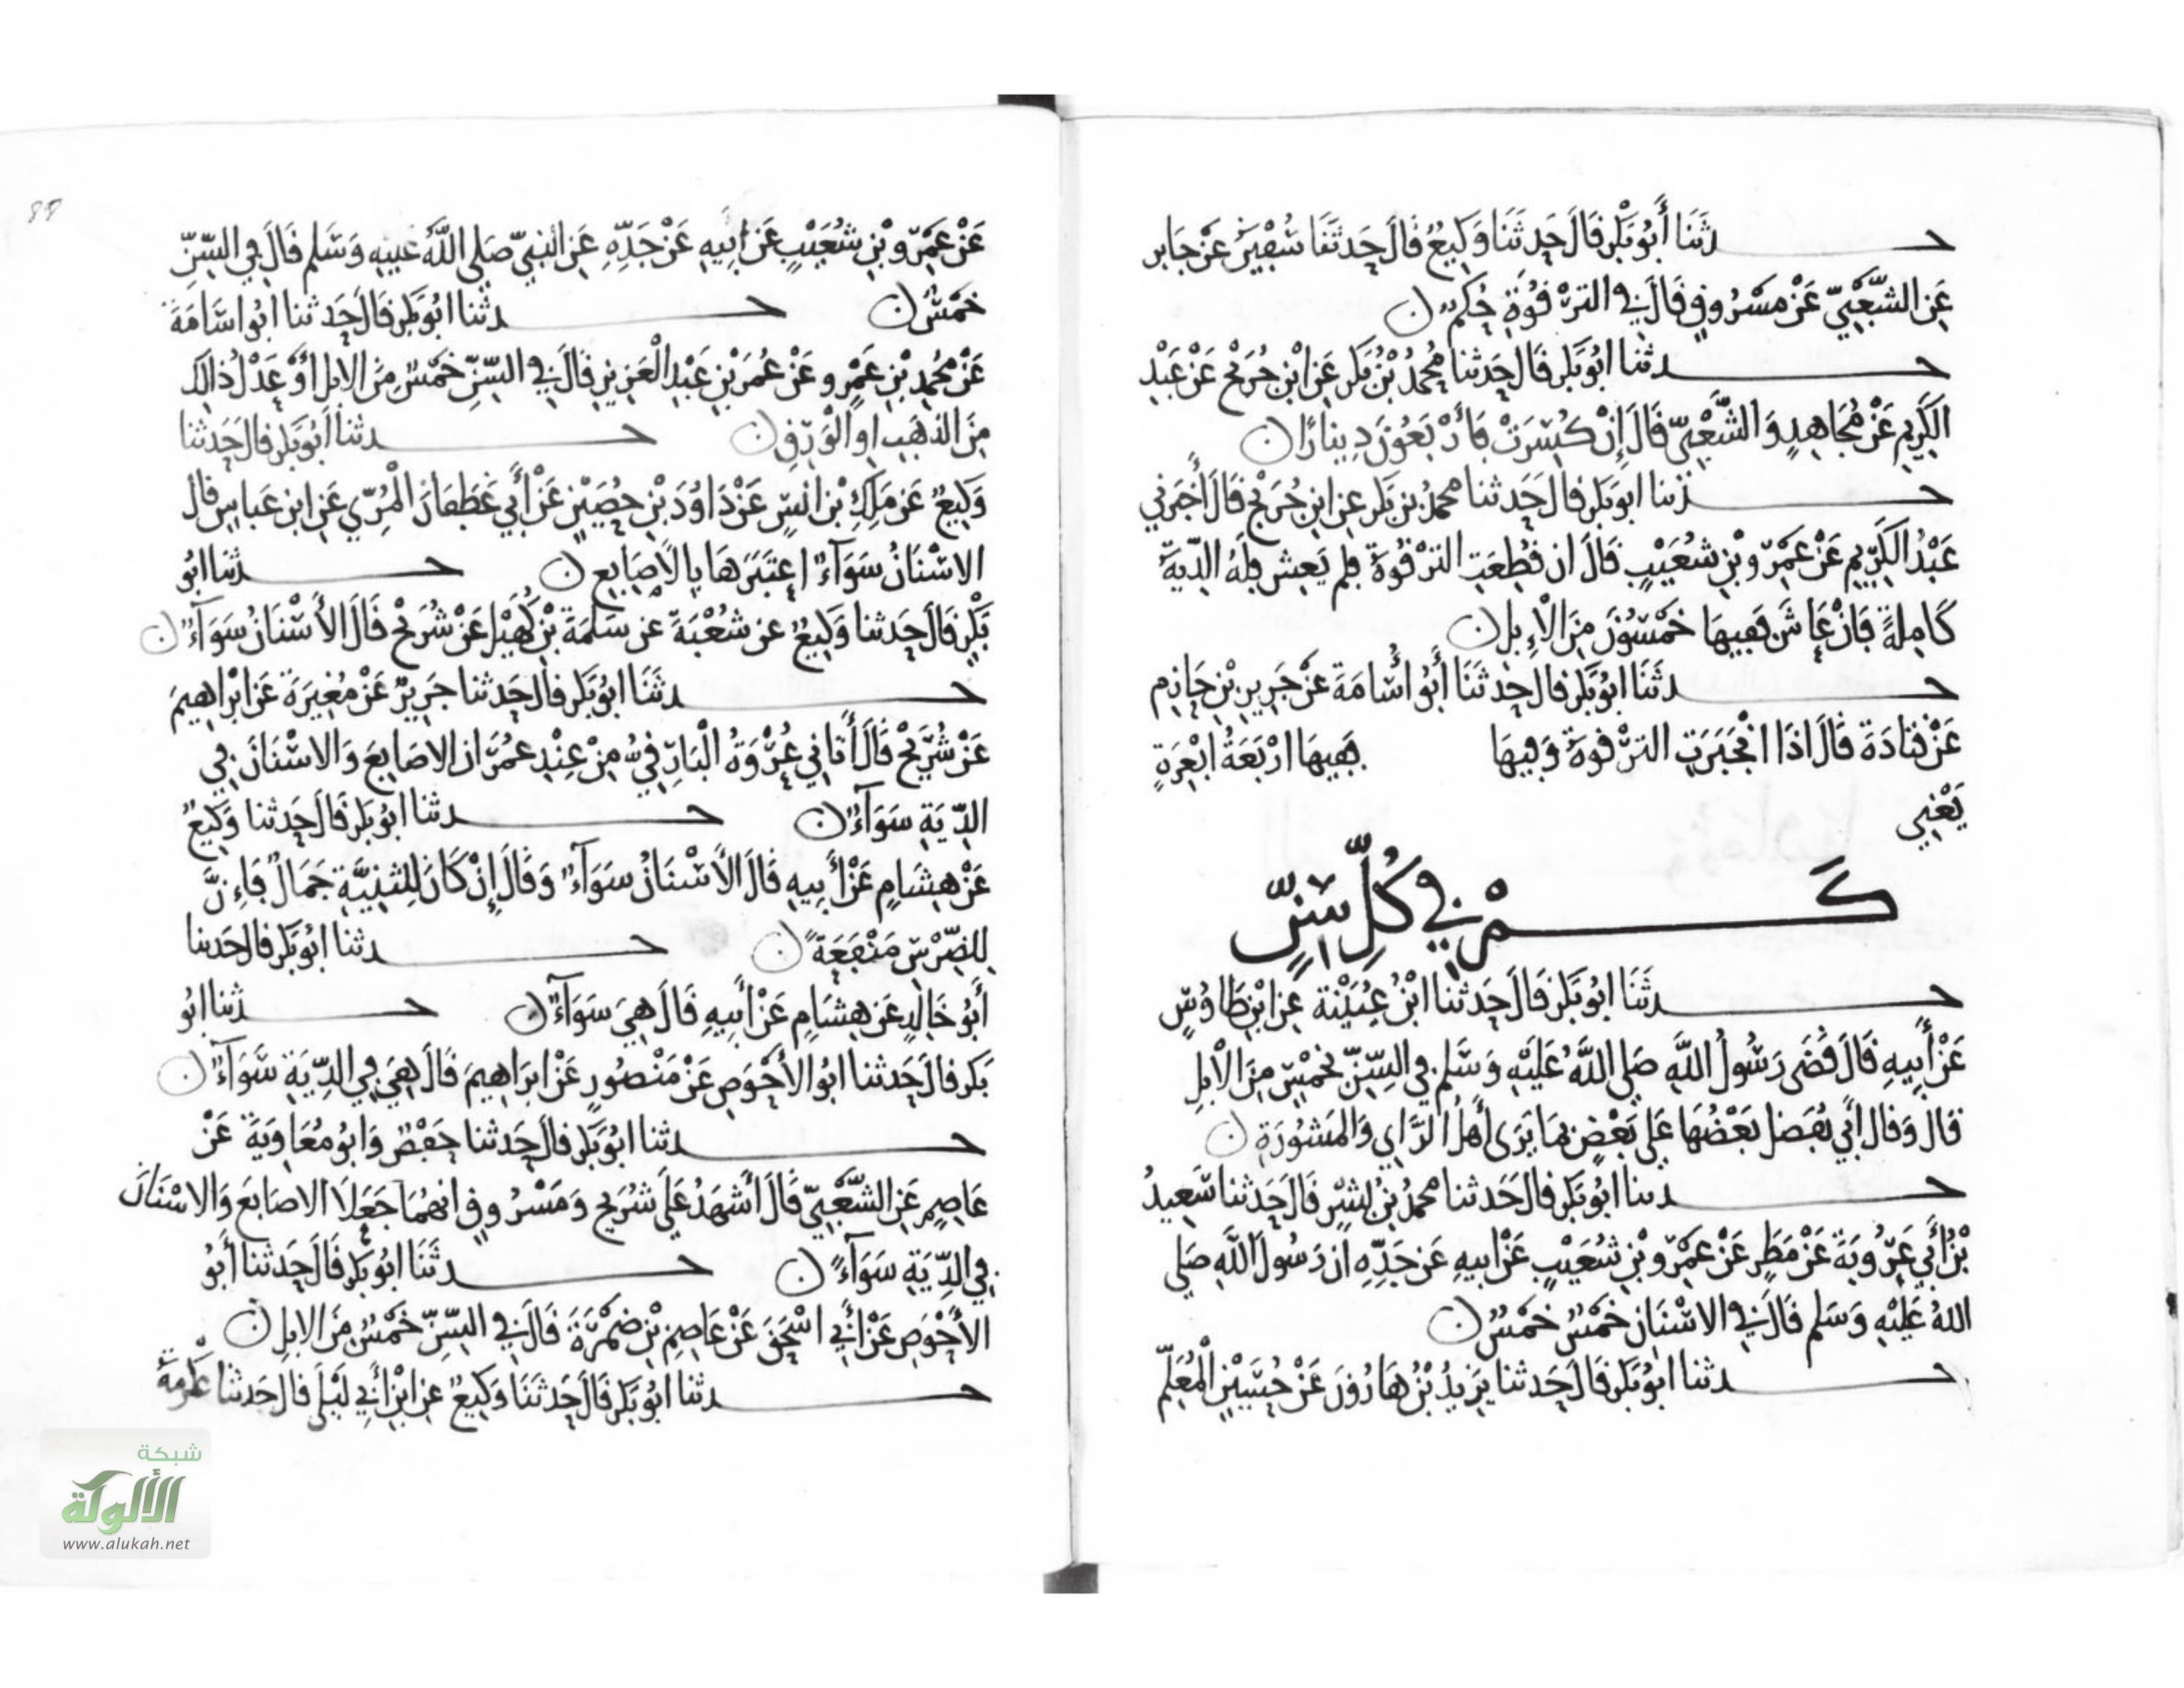 حدثنا أبو بكر قال حدثنا وكيع قال حدثنا سفين عن جابر
عن الشعبي عن مسروق قال في الترقوة حكم ن
حدثنا ابو بكر قال حدثنا محمد بن بكر عن ابن جريج عن عبد
الكريم عن مجاهد والشعبي قال إن كسرت فأربعون دينارا ن
حدثنا ابو بكر قال حدثنا محمد بن بكر عن ابن جريج قال أخبرني
عبد الكريم عن عمرو بن شعيب قال ان قطعت الترقوة فلم يعش فله الدية
كاملة فان عاش ففيها خمسون من الإبل ن
حدثنا ابو بكر قال حدثنا أبو أسامة عن جرير بن حازم
عن قتادة قال اذا انجبرت الترقوة وفيها ففيها اربعة ابعرة
يعني
كم في كل سن
حدثنا ابو بكر قال حدثنا ابن عيينة عن ابن طاوس
عن أبيه قال قضى رسول الله صلى الله عليه وسلم في السن بخمس من الابل
قال وقال أبي يفضل بعضها على بعض بما يرى أهل الراي والمشورة ن
حدثنا ابو بكر قال حدثنا محمد بن بشر قال حدثنا سعيد
بن أبي عروبة عن مطر عن عمرو بن شعيب عن ابيه عن جده ان رسول الله صلى
الله عليه وسلم قال في الاسنان خمس خمس ن
حدثنا ابو بكر قال حدثنا يزيد بن هارون عن حسين المعلم
٩٩
عن عمرو بن شعيب عن أبيه عن جده عن النبي صلى الله عليه وسلم قال في السن
خمس ن حدثنا ابو بكر قال حدثنا ابو اسامة
عن محمد بن عمرو عن عمر بن عبد العزيز قال في السن خمس من الابل أو عدل ذالك
من الذهب او الورق ن حدثنا أبو بكر قال حدثنا
وكيع عن ملك بن انس عن داود بن حصين عن أبي غطفان المري عن ابن عباس قال
الاسنان سواء إعتبرها بالأصابع ن حدثنا ابو
بكر قال حدثنا وكيع عن شعبة عن سلمة بن كهيل عن شريح قال الأسنان سواء ن
حدثنا ابو بكر قال حدثنا جرير عن مغيرة عن ابراهيم
عن شريح قال أتاني عروة البارقي من عند عمر ان الاصابع والاسنان في
الدية سواء ن حدثنا ابو بكر قال حدثنا وكيع
عن هشام عن أبيه قال الأسنان سواء وقال إن كان للثنية جمال فإن
للضرس منفعة ن حدثنا ابو بكر قال حدثنا
أبو خالد عن هشام عن أبيه قال هي سواء ن حدثنا ابو
بكر قال حدثنا ابو الأحوص عن منصور عن ابراهيم قال هي في الدية سواء ن
حدثنا ابو بكر قال حدثنا حفص وابو معاوية عن
عاصم عن الشعبي قال أشهد على شريح ومسروق انهما جعلا الاصابع والاسنان
في الدية سواء ن حدثنا ابو بكر قال حدثنا أبو
الأحوص عن أبي اسحق عن عاصم بن ضمرة قال في السن خمس من الابل ن
حدثنا ابو بكر قال حدثنا وكيع عن ابن أبي ليلى قال حدثنا عكرمة
شبكة
الألوكة
www.alukah.net